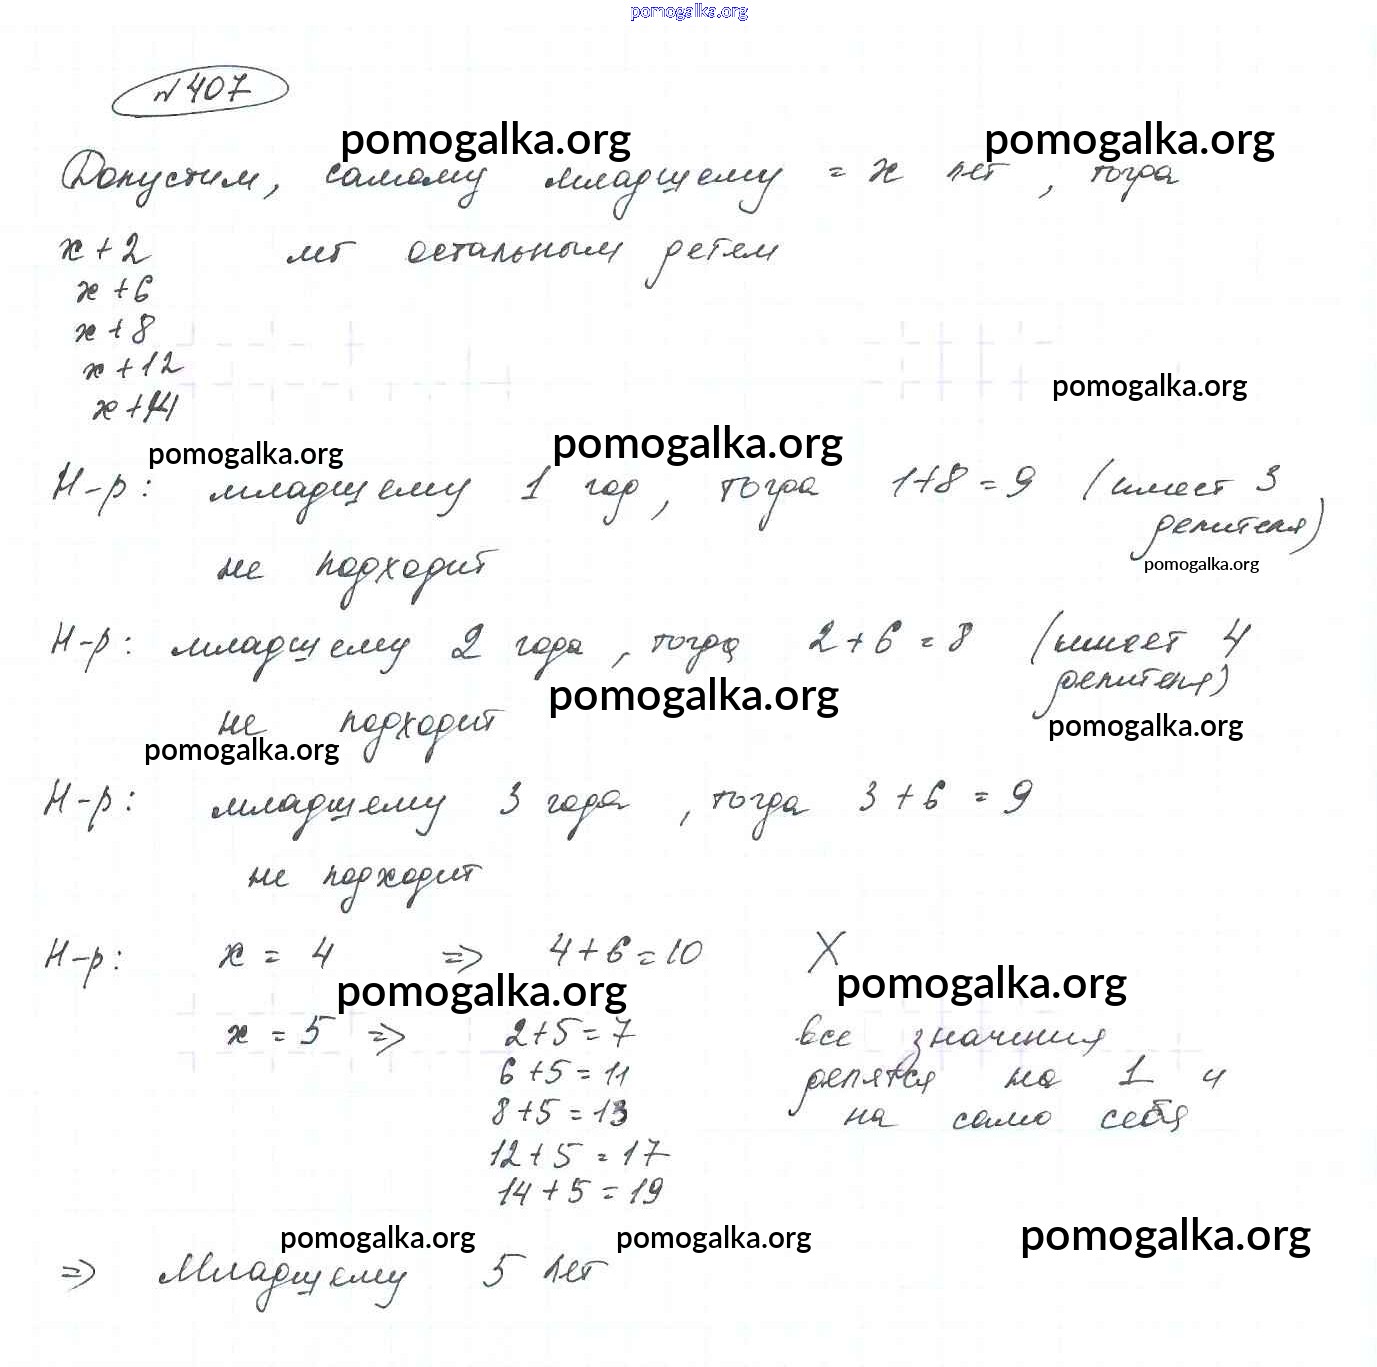 pomogalka.org
№407
pomogalka.org pomogalka.org
Допустим, самому младшему = х лет, тогда
х + 2 лет остальным детям
х + 6
х + 8
х + 12
pomogalka.org
х + 14
pomogalka.org pomogalka.org
Н-р: младшему 1 год, тогда 1+8=9 (имеет 3
делителя)
pomogalka.org
не подходит
Н-р: младшему 2 года, тогда 2+6=8 (имеет 4
делителя)
pomogalka.org
не подходит
pomogalka.org pomogalka.org
Н-р: младшему 3 года, тогда 3+6=9
не подходит
Н-р: х = 4 => 4+6=10 X
pomogalka.org pomogalka.org
х = 5 => 2+5=7 все значения
6+5=11 делятся на 1 и
8+5=13 на само себя
12+5=17
14+5=19
pomogalka.org pomogalka.org pomogalka.org
=> Младшему 5 лет